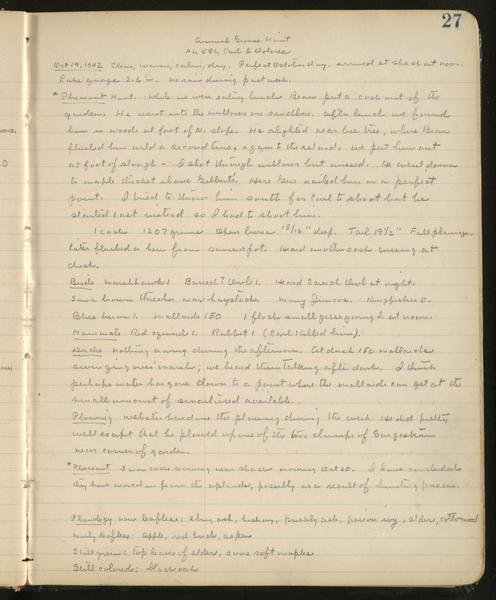 27
Annual Grouse Hunt
AL EBL Carl & Dolores
Oct 19, 1942 Clear, warm, calm, dry. Perfect October day. Arrived at shack at noon.
Lake gauge 2.6". No rain during past week.
* Pheasant Hunt. While we were eating lunch Beau put a cock out of the
garden. He went into the willows on sandbar. After lunch we found
him in woods at foot of N. slope. He alighted near bee tree, where Beau
flushed him wild a second time, again to the island. We put him out
at foot of slough - I shot through willows but missed. He went down
to maple thicket above Gilbert's. Here Gus nailed him on a perfect
point. I tried to throw him south for Carl to shoot but he
started east instead so I had to shoot him.
1 cock 1207 grams When bursa 15/16" deep. Tail 19 1/2" Full plumage.
Later flushed a hen from same spot. Heard another cock crowing at
dusk.
Birds Marshhawk 1 Barred? Owl 1. Heard Screech Owl at night.
Saw a brown thrasher near haystacks. Many Juncos. Kingfisher 0.
Blue heron 1. Mallards 150 1 flock small geese going S at noon.
Mammals Red squirrel 1. Rabbit 1 (Carl killed him).
Ducks nothing moving during the afternoon. At dusk 150 mallards
swinging over marsh; we heard them talking after dark. I think
perhaps water has gone down to a point where the mallards can get at the
small amount of smartweed available.
Plowing Webster had done the plowing during the week. He did pretty
well except that he plowed up one of the two clumps of
near corner of garden.
* Pheasant I saw crowing near shack morning Oct 20. I have concluded
they have moved in from the uplands, possibly as a result of hunting pressure.
Phenology now leafless: elm, ash, hickory, prickly ash, poison ivy, alder, cottonwood
nearly leafless: apple, red birch, aspen
Still green: top leaves of elder, some soft maples
Still colored: black oak